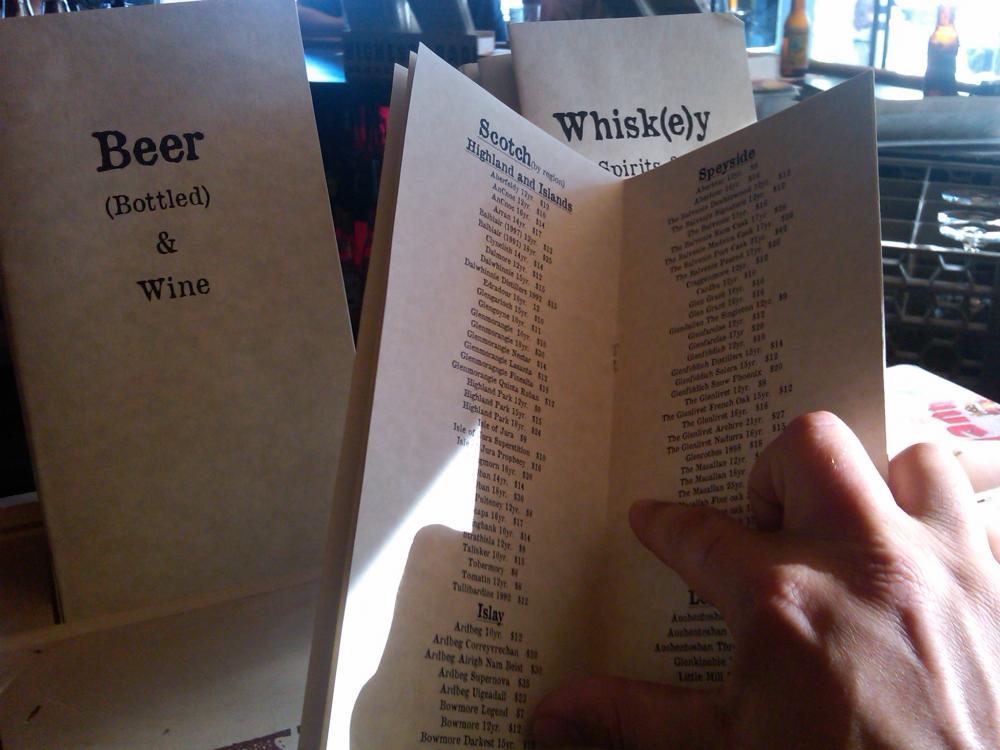 Beer
(Bottled)
&
Wine
Whisk(e)y
Spirits
Scotch (by region)
Highland and Islands
Aberfeldy 12yr. $12
AnCnoc 12yr. $10
AnCnoc 16yr. $14
Arran 14yr. $17
Balblair (1997) 12yr. $13
Balblair (1991) 18yr. $25
Clynelish 14yr. $14
Dalmore 12yr. $12
Dalwhinnie 15yr. $15
Dalwhinnie Distillers 1992 $15
Edradour 10yr.
Glengarioch 15yr. $10
Glengoyne 10yr. $11
Glenmorangie 10yr. $10
Glenmorangie 18yr. $20
Glenmorangie Nectar $14
Glenmorangie Lasanta $12
Glenmorangie Finealta $18
Glenmorangie Quinta Ruban $12
Highland Park 12yr. $9
Highland Park 15yr. $15
Highland Park 18yr. $24
Isle of Jura $9
Isle of Jura Superstition $10
Isle of Jura Prophecy $16
16yr.
14yr. $14
18yr. $26
Pulteney 12yr. $8
16yr. $17
10yr. $14
Strathisla 12yr. $8
Talisker 10yr. $15
Tobermory $8
Tomatin 12yr. $8
Tullibardine 1992 $12
Islay
Ardbeg 10yr. $12
Ardbeg Correyvrechan $20
Ardbeg Airigh Nam Beist $30
Ardbeg Supernova $35
Ardbeg Uigeadail $23
Bowmore Legend $7
Bowmore 12yr. $12
Bowmore Darkest 15yr.
Speyside
Aberlour 12yr. $9
Aberlour 16yr. $16
The Balvenie Doublewood 12yr. $13
The Balvenie Signature 12yr. $12
The Balvenie 15yr. $18
The Balvenie Rum Cask 17yr. $26
The Balvenie Madeira Cask 17yr. $26
The Balvenie Port Cask 21yr. $42
The Balvenie Peated 17yr. $26
Cragganmore 12yr. $10
Cardhu 12yr. $10
Glen Grant 10yr. $10
Glen Grant 16yr. $16
Glendullan The Singleton 12yr. $9
Glenfarclas 12yr. $12
Glenfarclas 17yr. $20
Glenfiddich 12yr. $10
Glenfiddich Distillers 15yr. $14
Glenfiddich Solera 15yr. $12
Glenfiddich Snow Phoenix $20
The Glenlivet 12yr. $8
The Glenlivet French Oak 15yr. $12
The Glenlivet 18yr. $16
The Glenlivet Archive 21yr. $27
The Glenlivet Nadurra 16yr. $15
Glenrothes 1998 $18
The Macallan 12yr.
The Macallan 18yr.
The Macallan 25yr.
Macallan Fine oak
Auchentoshan
Auchentoshan
Auchentoshan Thr
Glenkinchie
Little Mill